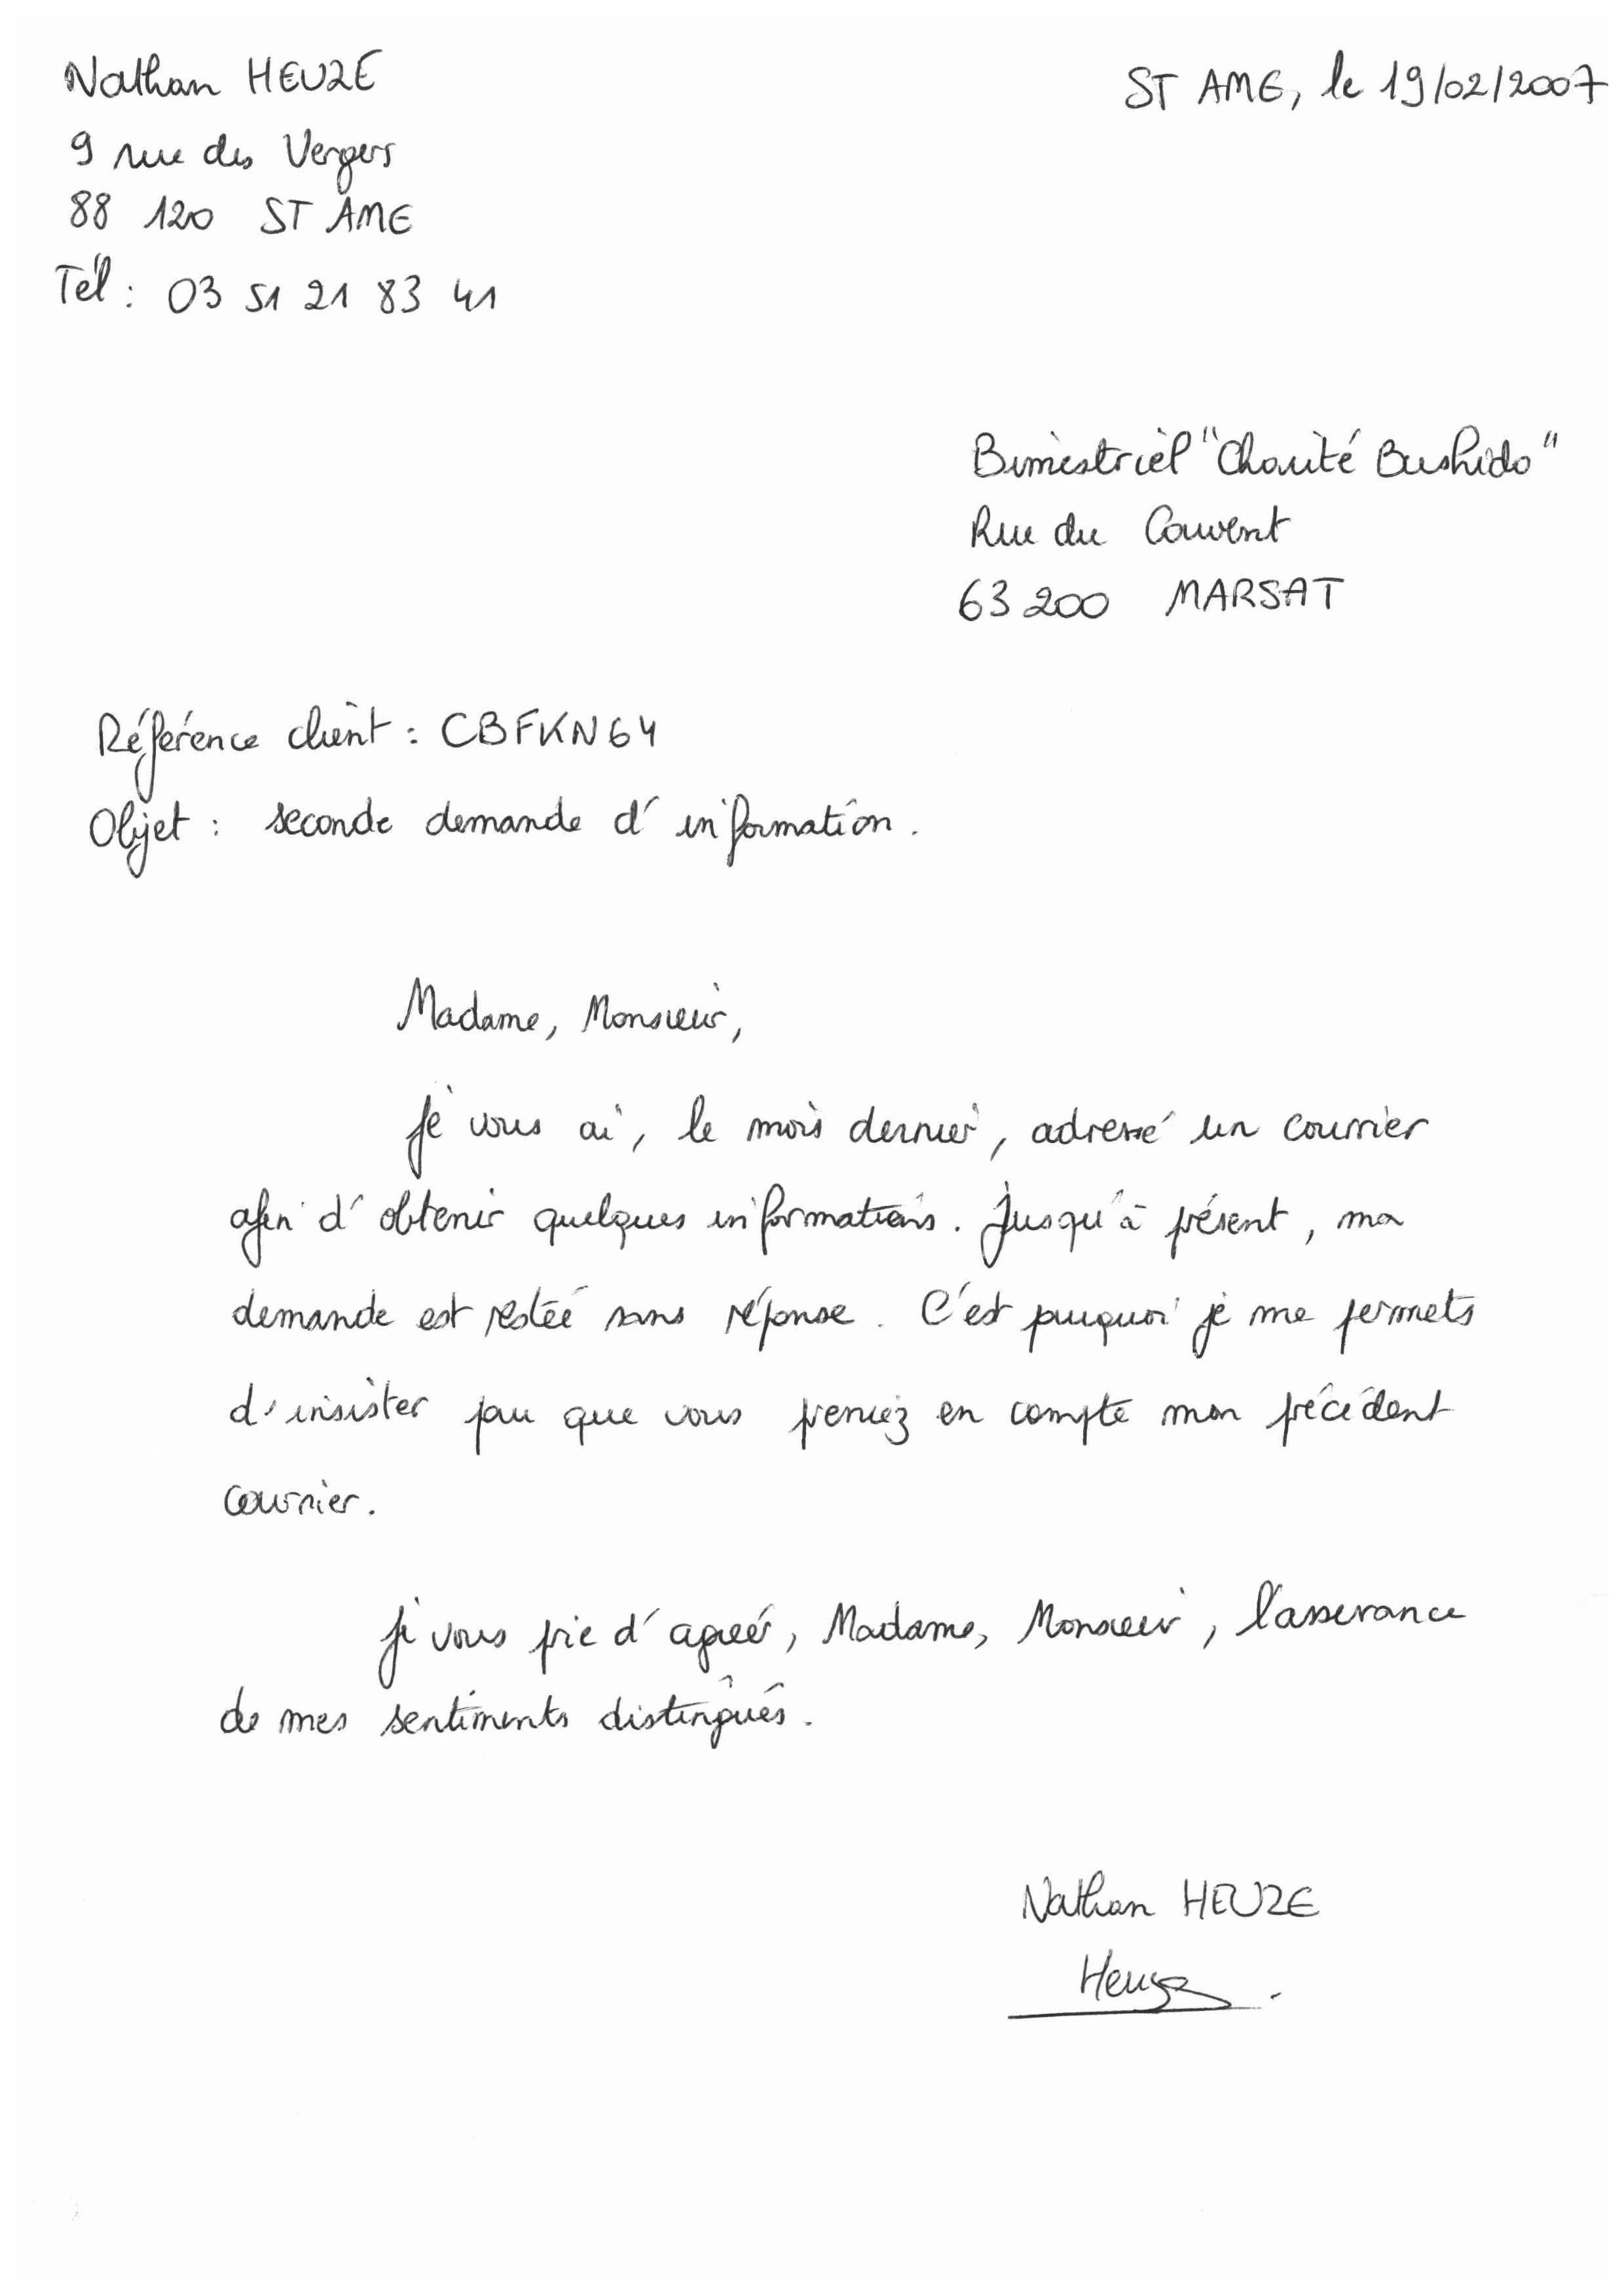 Nathan HEUZE
ST AME, le 19/02/2007
9 rue des Vergers
88 120 ST AME
Tél : 03 51 21 83 41
Bimestriel "Charité Bushido"
Rue du Couvent
63 200 MARSAT
Référence client : CBFKN64
Objet : seconde demande d'information.
Madame, Monsieur,
Je vous ai, le mois dernier, adressé un courrier
afin d'obtenir quelques informations. Jusqu'à présent, ma
demande est restée sans réponse. C'est pourquoi je me permets
d'insister pour que vous preniez en compte mon précédent
courrier.
Je vous prie d'agréer, Madame, Monsieur, l'assurance
de mes sentiments distingués.
Nathan HEUZE
Heuze